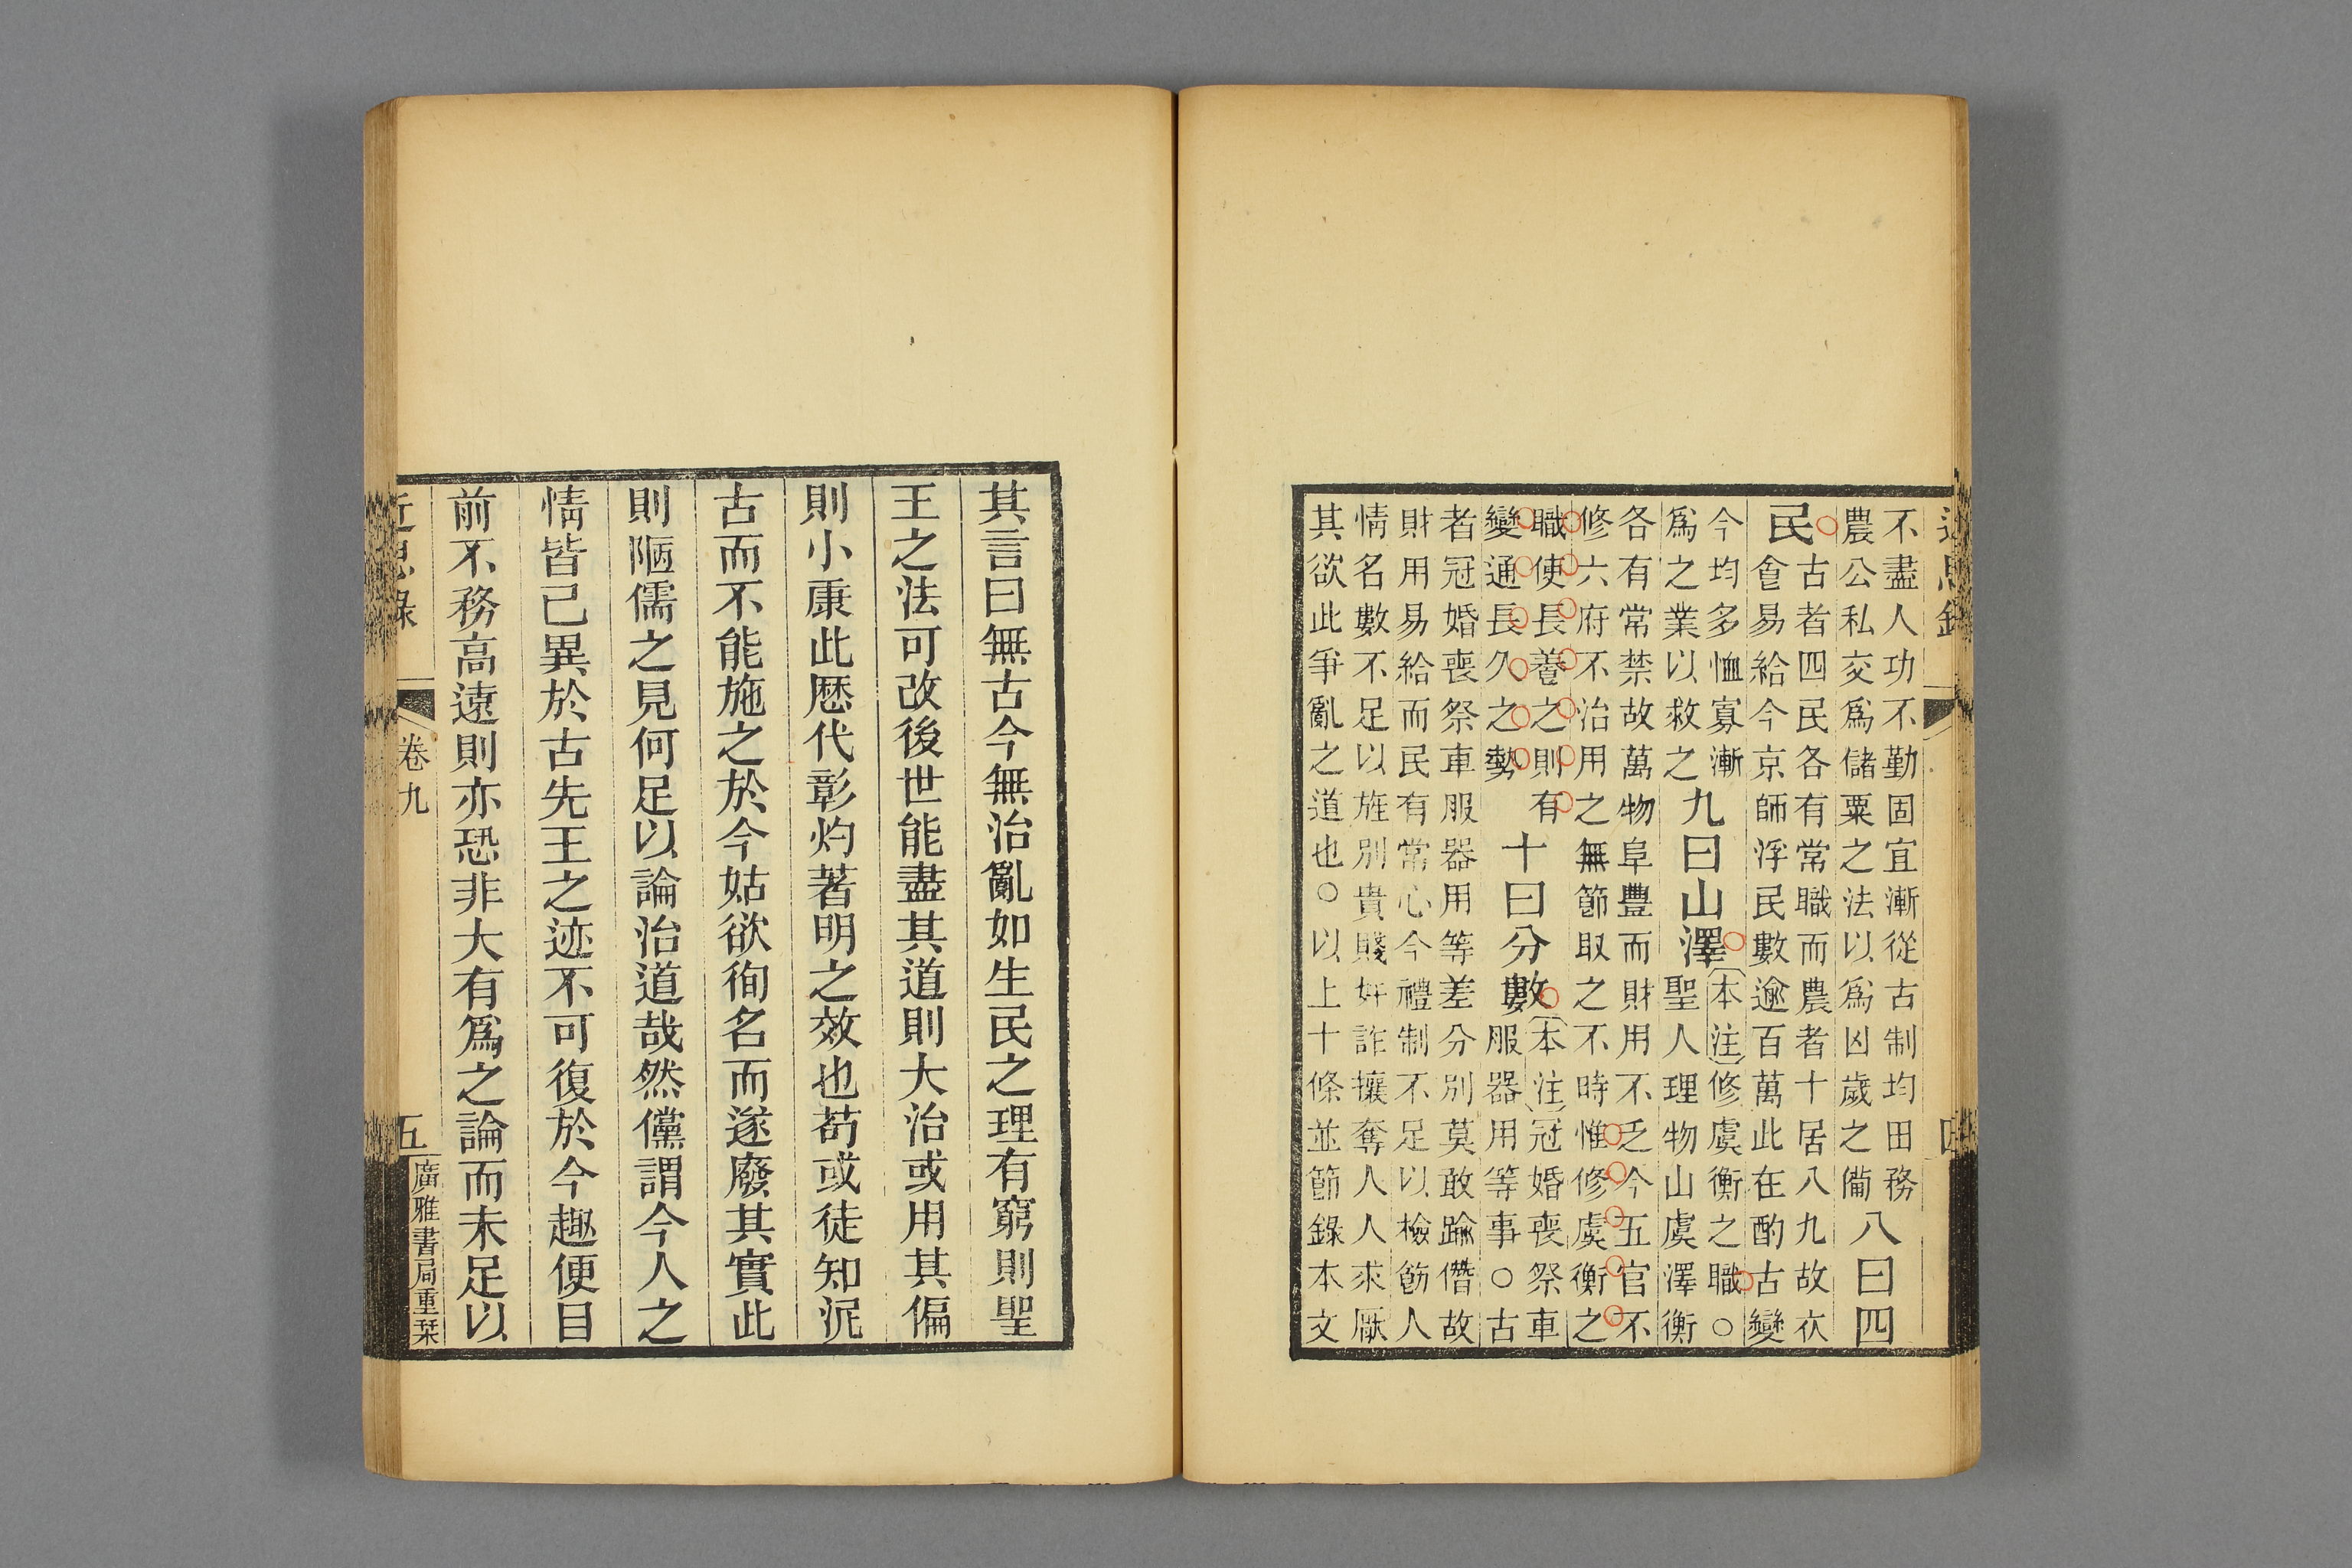 近思錄
四
不盡人功不勤固宜漸從古制均田務
農公私交爲儲粟之法以爲凶歲之備
八曰四
民
古者四民各有常職而農者十居八九故衣
食易給今京師浮民數逾百萬此在酌古變
今均多恤寡漸
爲之業以救之
九曰山澤
本注修虞衡之職○
聖人理物山虞澤衡
各有常禁故萬物阜豐而財用不乏今五官不
修六府不治用之無節取之不時惟修虞衡之
職使長養之則有
變通長久之勢
十曰分數
本注冠婚喪祭車
服器用等事○古
者冠婚喪祭車服器用等差分別莫敢踰僭故
財用易給而民有常心今禮制不足以檢飭人
情名數不足以旌別貴賤奸詐攘奪人人求厭
其欲此爭亂之道也○以上十條並節錄本文
其言曰無古今無治亂如生民之理有窮則聖
王之法可改後世能盡其道則大治或用其偏
則小康此歷代彰灼著明之效也苟或徒知泥
古而不能施之於今姑欲徇名而遂廢其實此
則陋儒之見何足以論治道哉然儻謂今人之
情皆已異於古先王之迹不可復於今趣便目
前不務高遠則亦恐非大有爲之論而未足以
近思錄
卷九
五
廣雅書局重栞